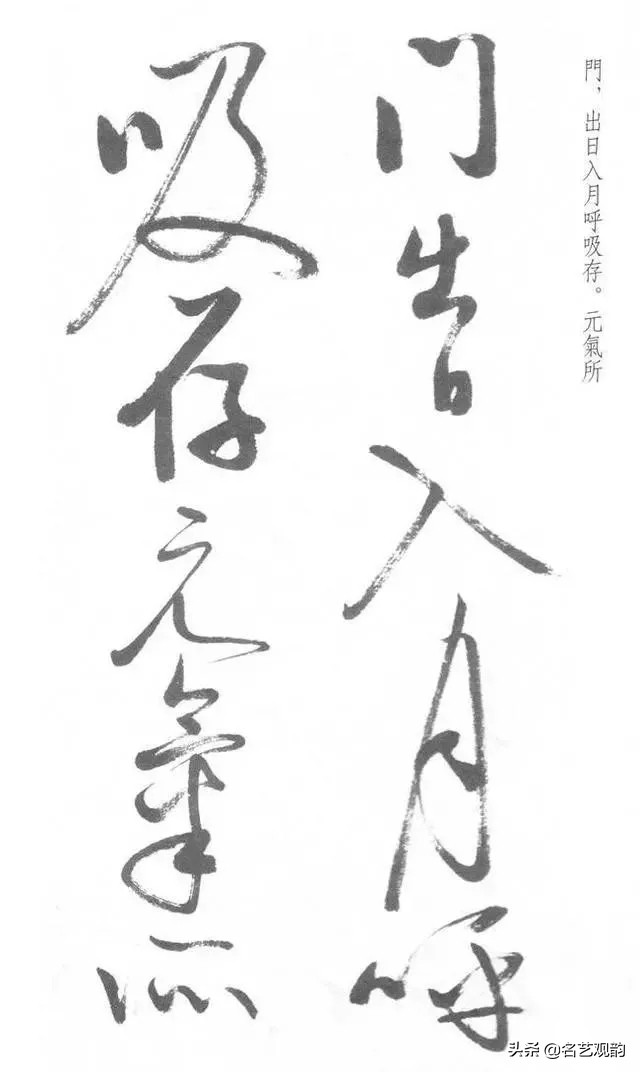 門，出日入月呼吸存。元氣所
门出日入月呼
吸存元氣所
头条 @名艺观韵